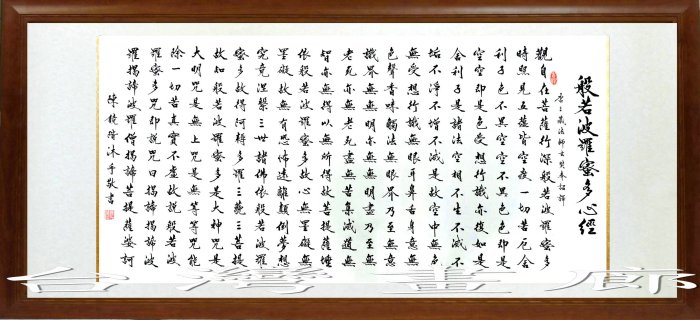 般若波羅蜜多心經
唐三藏法師玄奘奉詔譯
觀自在菩薩行深般若波羅蜜多
時照見五蘊皆空度一切苦厄舍
利子色不異空空不異色色即是
空空即是色受想行識亦復如是
舍利子是諸法空相不生不滅不
垢不淨不增不減是故空中無色
無受想行識無眼耳鼻舌身意無
色聲香味觸法無眼界乃至無意
識界無無明亦無無明盡乃至無
老死亦無老死盡無苦集滅道無
智亦無得以無所得故菩提薩埵
依般若波羅蜜多故心無罣礙無
罣礙故無有恐怖遠離顛倒夢想
究竟涅槃三世諸佛依般若波羅
蜜多故得阿耨多羅三藐三菩提
故知般若波羅蜜多是大神咒是
大明咒是無上咒是無等等咒能
除一切苦真實不虛故說般若波
羅蜜多咒即說咒曰揭諦揭諦波
羅揭諦波羅僧揭諦菩提薩婆訶
陳沐手敬書
台灣畫廊